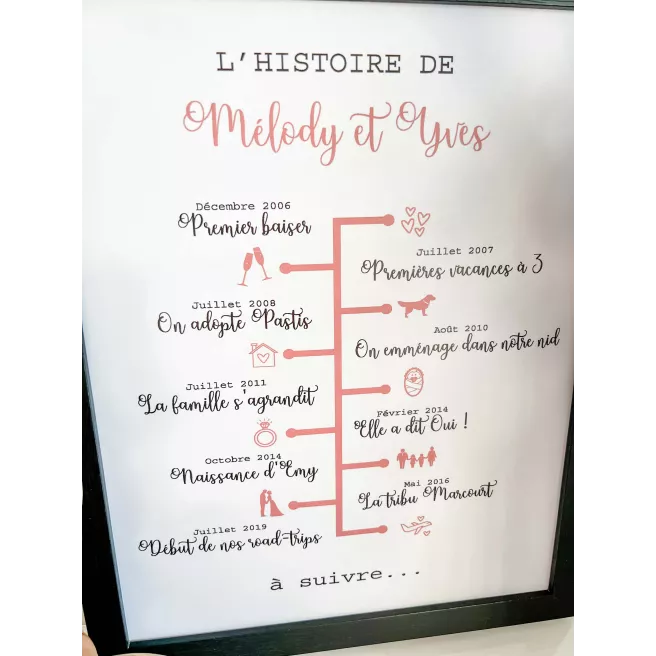 L'HISTOIRE DE
Mélody et Yves
Décembre 2006
Premier baiser
Juillet 2007
Premières vacances à 3
Juillet 2008
On adopte Pastis
Août 2010
On emménage dans notre nid
Juillet 2011
La famille s'agrandit
Février 2014
Elle a dit Oui !
Octobre 2014
Naissance d'Emy
Mai 2016
La tribu Marcourt
Juillet 2019
Début de nos road-trips
à suivre...